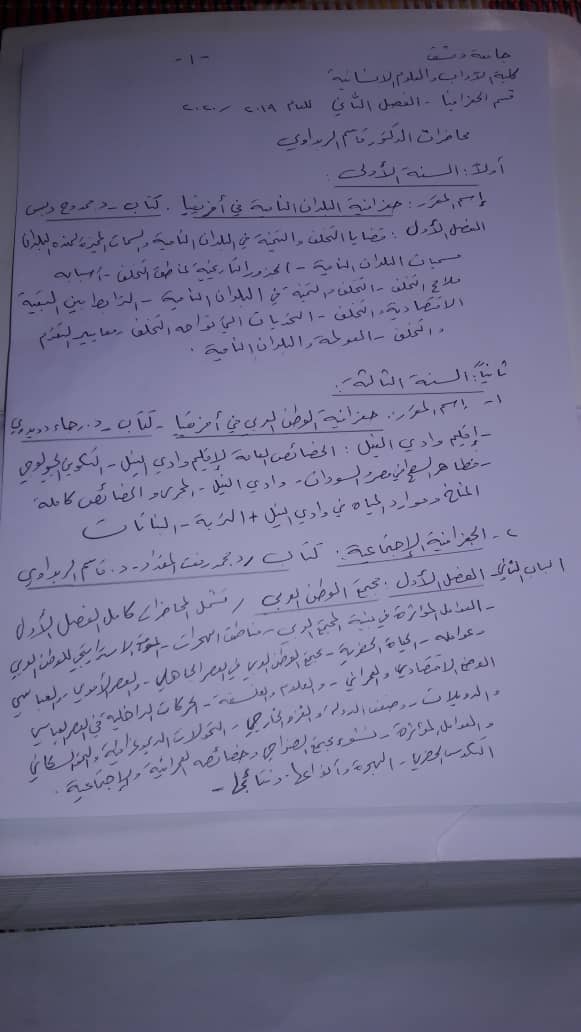 - ١ -
جامعة دمشق
كلية الآداب والعلوم الإنسانية
قسم الجغرافيا - الفصل الثاني للعام ٢٠١٩ / ٢٠٢٠
محاضرات الدكتور قاسم الربداوي
أولاً: السنة الأولى:
إسم المقرر: جغرافية البلدان النامية في أفريقيا. كتاب - د. ممدوح دبس
الفصل الأول: قضايا التخلف والتنمية في البلدان النامية والسمات المميزة لهذه البلدان
مسميات البلدان النامية - الجذور التاريخية التخلف - أسبابه
ملامح التخلف - التخلف والتنمية في البلدان النامية - الترابط بين التبعية
الاقتصادية والتخلف - التحديات التي تواجه التخلف - معايير التقدم
والتخلف - العولمة والبلدان النامية.
ثانياً: السنة الثالثة:
١- إسم المقرر: جغرافية الوطن العربي في أفريقيا - كتاب - د. رجاء دويدري
- إقليم وادي النيل: الخصائص العامة لإقليم وادي النيل - التكوين الجيولوجي
- مظاهر السطح في مصر والسودان - وادي النيل - المجرى والخصائص كاملة
المناخ وموارد المياه في وادي النيل + التربة - النباتات
٢- الجغرافية الإجتماعية: كتاب د. محمد رفعت المقداد - د. قاسم الربداوي
الباب الثاني - الفصل الأول مجتمع الوطن العربي / تشمل المحاضرات كامل الفصل الأول
- العوامل المؤثرة في بنية المجتمع العربي - مناطق الهجرات - الاستراتيجي للوطن العربي
- عوامله - الحياة الحضرية - مجتمع الوطن العربي في العصر الجاهلي - والعصر الأموي والعباسي
الوضع الاقتصادي والعمراني - والعلوم والفلسفة - الحركات الداخلية في العصر العباسي
والدويلات - وضعف الدولة والغزو الخارجي - التحولات الديموغرافية والنمو السكاني
والعوامل المؤثرة - نشوء مجتمع وخصائصه العمرانية والإجتماعية.
- الهجرة وأنواعها - ونتائجها -